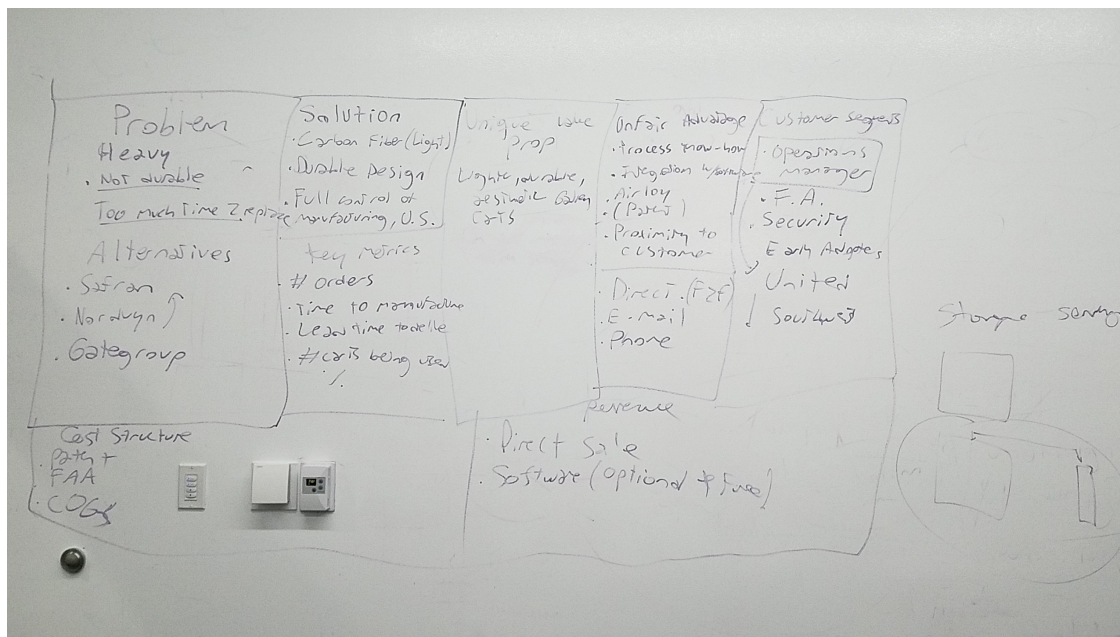 Problem
Heavy
· Not durable
Too much Time 2 replace
Alternatives
· Safran
· Norduyn
· Gategroup
Solution
· Carbon Fiber (Light)
· Durable Design
· Full control of
manufacturing, U.S.
Key metrics
# orders
· Time to manufacture
· Lead Time to
· # carts being used
%
Unique Value
Prop
Light, durable,
Carts
Unfair Advantage
· Process know-how
· Integration
· Airloy
· (Patent)
· Proximity to
customer
· Direct (F2F)
· E-mail
· Phone
Customer Segments
· Operations
manager
· F.A.
· Security
Early Adopters
United
Southwest
Cost Structure
· Patent
FAA
· COGs
Revenue
· Direct Sale
· Software (optional & Free)
Storage